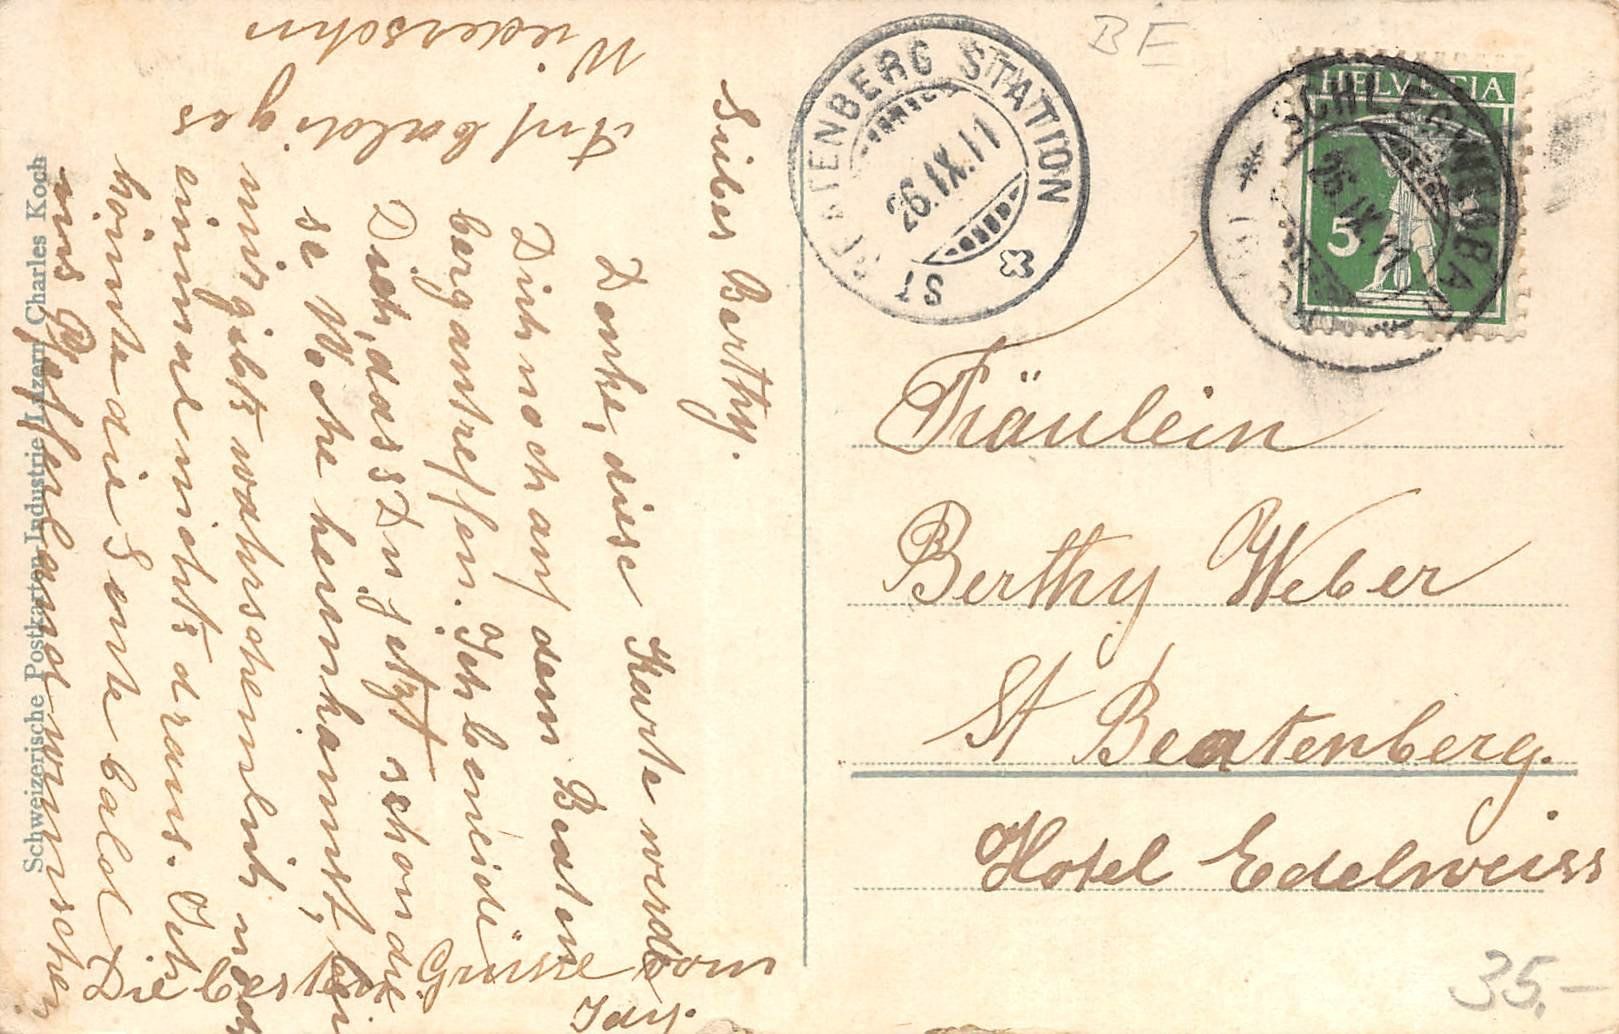 Lieber Berthy.
Denke, diese Karte werde
Dich noch auf dem Beaten
berg antreffen. Ich beneide
Dich, dass Du jetzt schon die
se Woche heimkannst, bei
mir gibts wahrscheinlich noch
einmal nichts draus. Ich
könnte die Leute bald
ins Pfefferland wünschen
Die besten Grüsse vom
Idy.
Auf baldiges
Wiedersehn
Schweizerische Postkarten-Industrie Luzern Charles Koch
ST BEATENBERG STATION
26.IX.11
BE
HELVETIA
5
26.IX.11
Fräulein
Berthy Weber
St Beatenberg.
Hotel Edelweiss
35.-